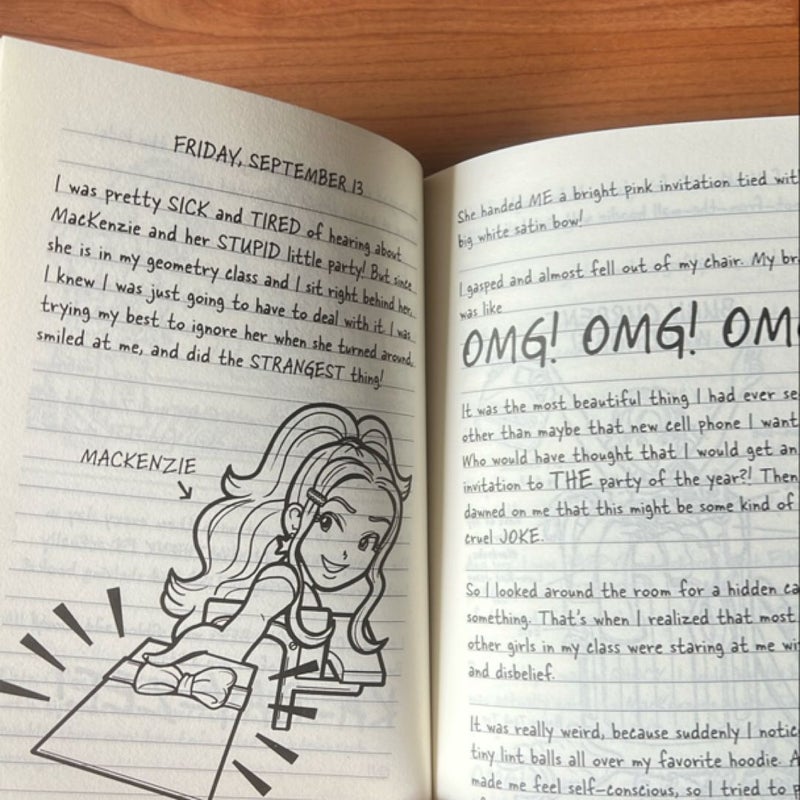 FRIDAY, SEPTEMBER 13
I was pretty SICK and TIRED of hearing about
MacKenzie and her STUPID little party! But since
she is in my geometry class and I sit right behind her,
I knew I was just going to have to deal with it. I was
trying my best to ignore her when she turned around,
smiled at me, and did the STRANGEST thing!
MACKENZIE
She handed ME a bright pink invitation tied
big white satin bow!
I gasped and almost fell out of my chair. My
was like
OMG! OMG!
It was the most beautiful thing I had ever
other than maybe that new cell phone I
Who would have thought that I would get an
invitation to THE party of the year?! Then
dawned on me that this might be some kind of
cruel JOKE.
So I looked around the room for a hidden
something. That's when I realized that most
other girls in my class were staring at me
and disbelief.
It was really weird, because suddenly I
tiny lint balls all over my favorite hoodie.
made me feel self-conscious, so I tried to